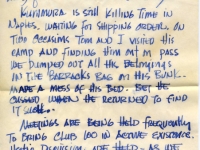 Kurimura is still killing time in
Naples, waiting for shipping orders. On
two occasions Tom and I visited his
camp and finding him out on pass
we dumped out all his belongings
in the barracks bag on his bunk.
Made a mess of his bed. Bet he
cussed when he returned to find
it such.
Meetings are being held frequently
to bring Club 100 in active existence.
Discussion are held - as we